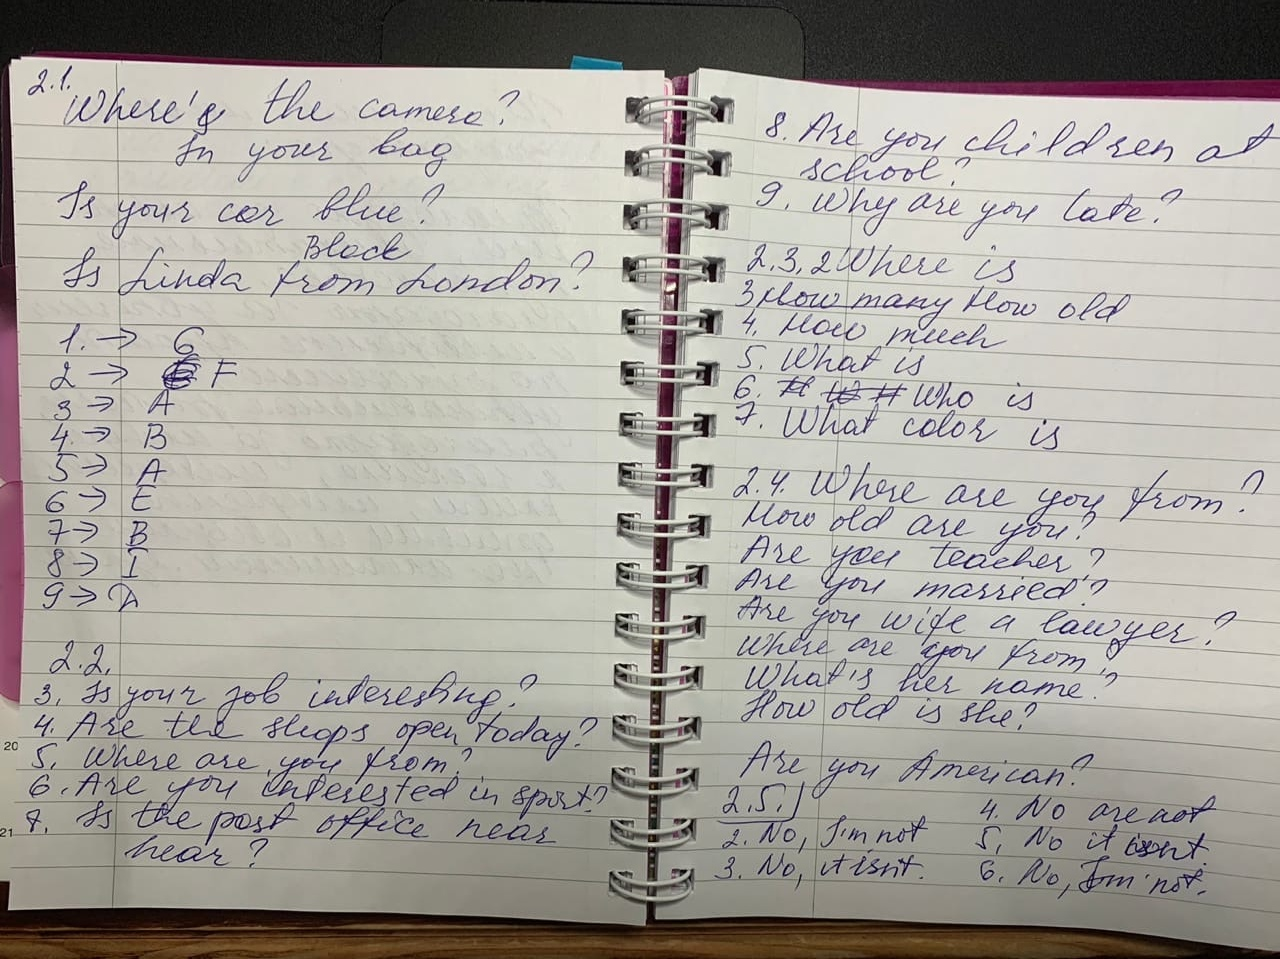 2.1.
Where's the camera?
In your bag
Is your car blue?
Black
Is Linda from London?
1. → G
2 → F
3 → A
4. → B
5 → A
6 → E
7 → B
8 → I
9 →
2.2.
3. Is your job interesting?
4. Are the shops open today?
5. Where are you from?
6. Are you interested in sport?
7. Is the post office near
hear?
8. Are you children at
school?
9. Why are you late?
2.3. 2 Where is
3 How many How old
4. How much
5. What is
6. Who is
7. What color is
2.4. Where are you from?
How old are you?
Are you teacher?
Are you married?
Are you wife a lawyer?
Where are you from?
What's her name?
How old is she?
Are you American?
2.5.
2. No, I'm not
3. No, it isn't.
4. No are not
5. No it isn't.
6. No, I'm not.
20
21